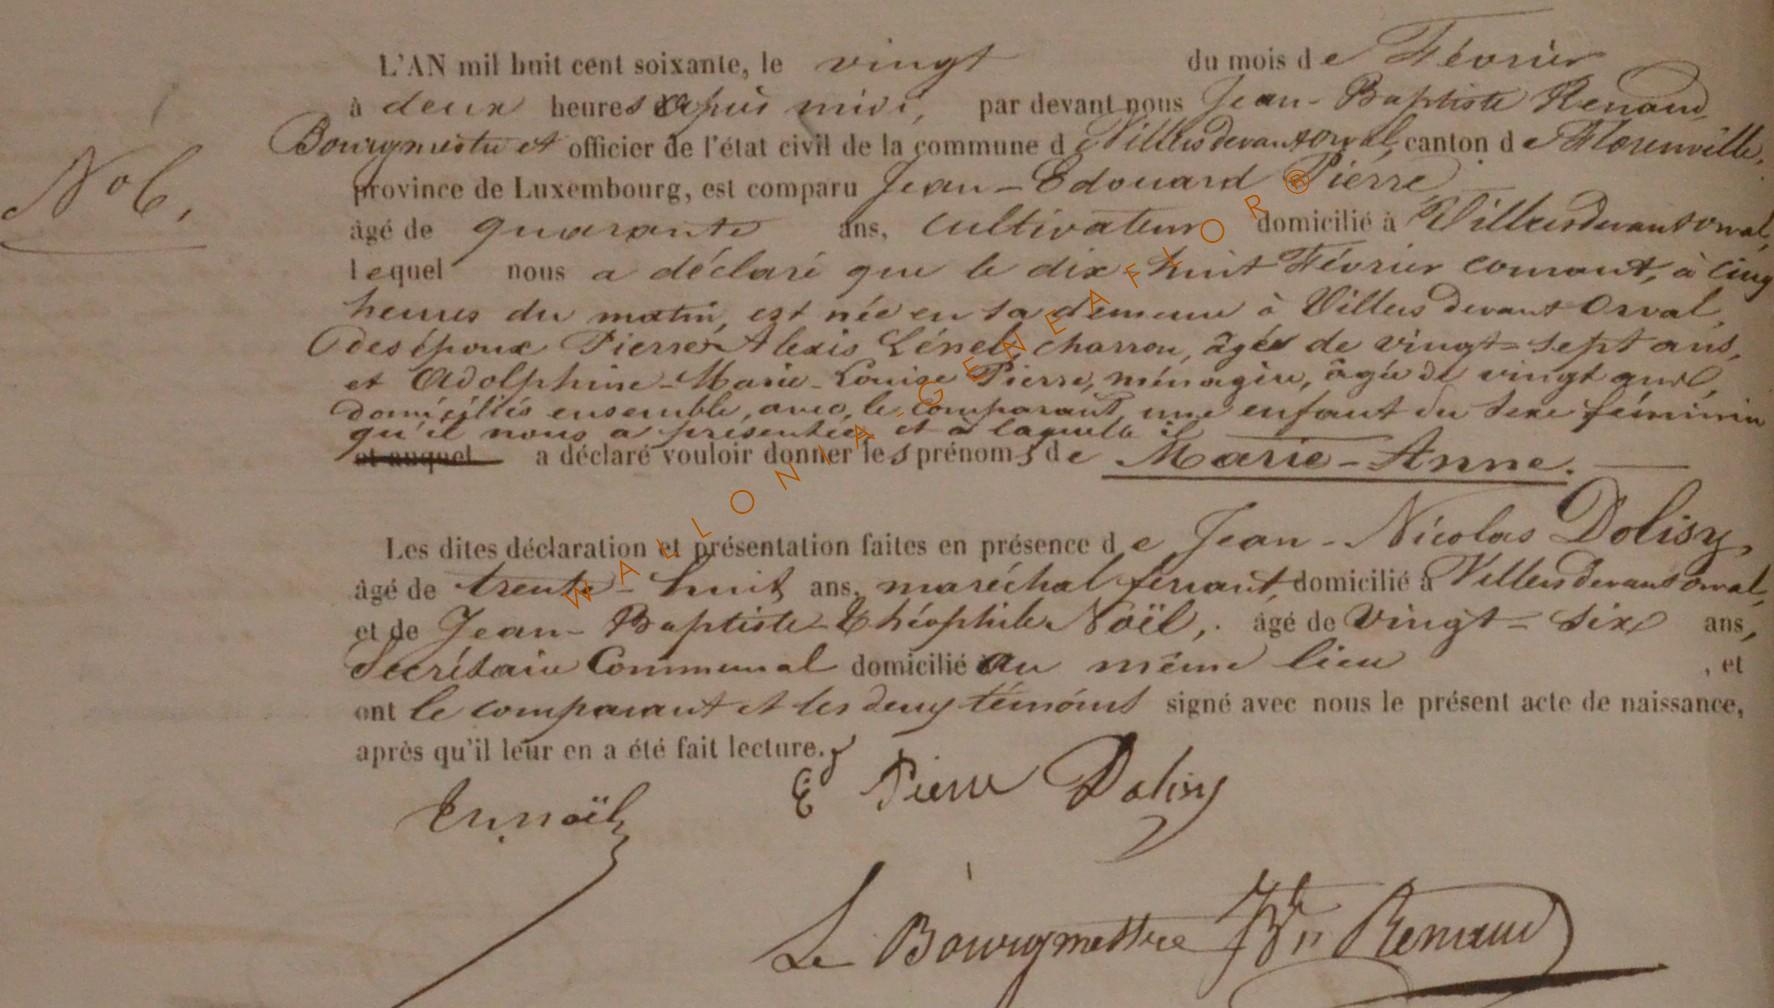 L'AN mil huit cent soixante, le vingt du mois de Février
à deux heures après midi, par devant nous Jean-Baptiste Renaud
Bourgmestre et officier de l'état civil de la commune d Villersdevantorval, canton de Florenville,
N° 6.
province de Luxembourg, est comparu Jean-Edouard Pierre
âgé de quarante ans, cultivateur domicilié à Villersdevantorval,
lequel nous a déclaré que le dix huit Février courant, à cinq
heures du matin, est née en sa demeure à Villers devant Orval,
des époux Pierre Alexis Lénel, charron, âgé de vingt-sept ans,
et Adolphine-Marie-Louise Pierre, ménagère, âgée de vingt
domiciliés ensemble, avec le comparant, une enfant du sexe féminin
qu'il nous a présentée, et à laquelle il
et auquel a déclaré vouloir donner les prénoms de Marie-Anne.
Les dites déclaration et présentation faites en présence de Jean-Nicolas Dolisy,
âgé de trente-huit ans, maréchal ferrant, domicilié à Villersdevantorval,
et de Jean-Baptiste-Théophile Noël, âgé de vingt-six ans,
Secrétaire Communal domicilié au même lieu, et
ont le comparant et les deux témoins signé avec nous le présent acte de naissance,
après qu'il leur en a été fait lecture.
E Pierre Dolisy
noël
Le Bourgmestre Renaud
WALLONIA-GENEAFLOR®